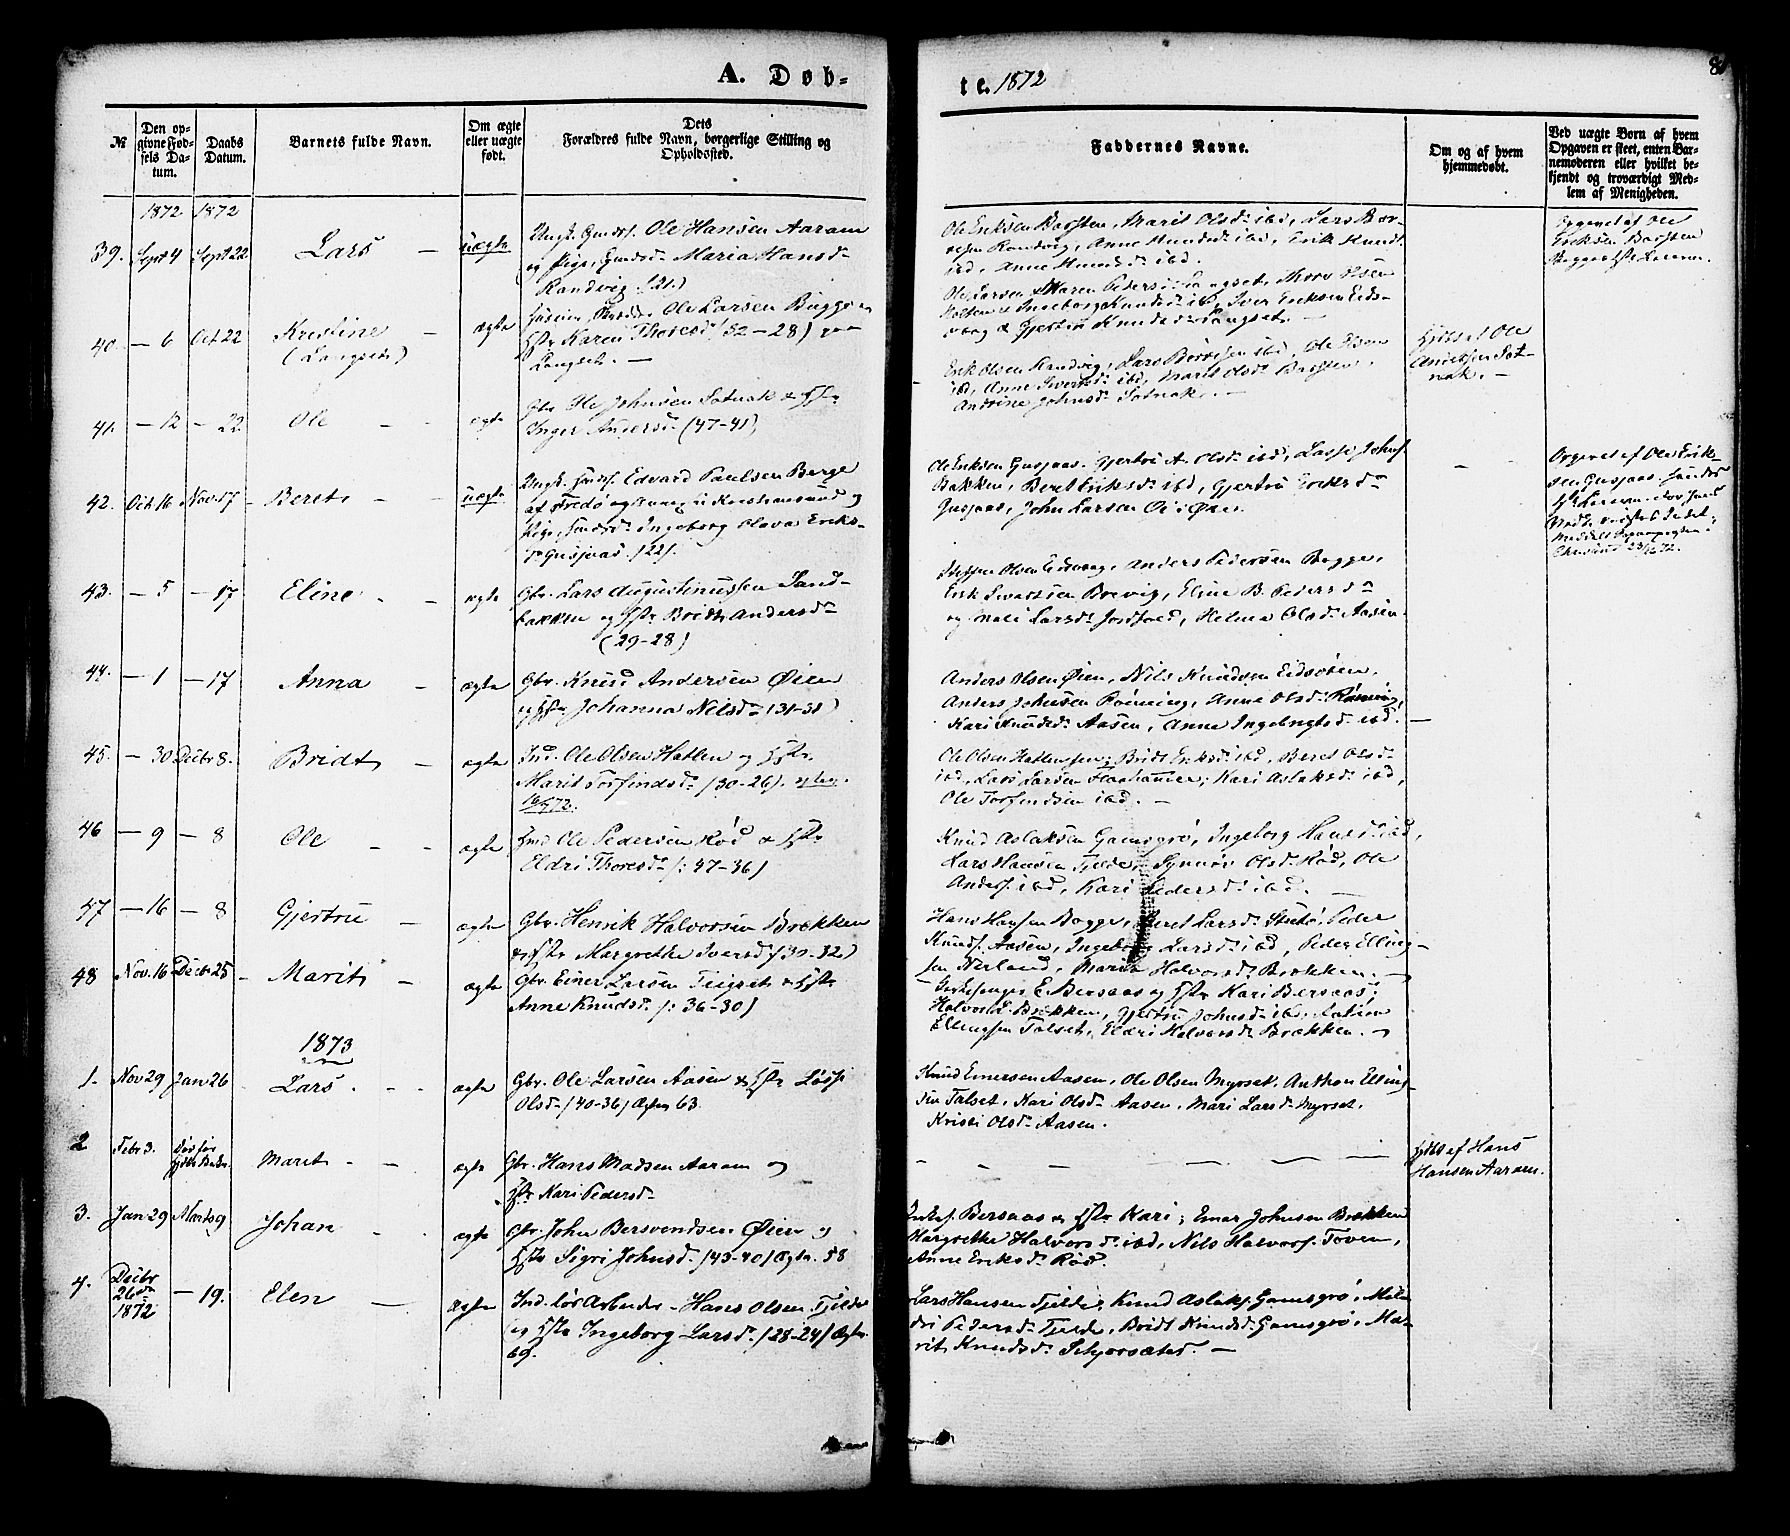 A. Døb-
te. 1872
8
№
Den op-
givne Fød-
sels Da-
tum.
Daabs
Datum.
Barnets fulde Navn.
Om ægte
eller uægte
født.
Dets
Forældres fulde Navn, borgerlige Stilling og
Opholdssted.
Faddernes Navne.
Om og af hvem
hjemmedøbt.
Ved uægte Børn af hvem
Opgaven er skeet, enten Bar-
nemoderen eller hvilket be-
kjendt og troværdigt Med-
lem af Menigheden.
1872 1872
39. Sept 4 Sept 22 Lars - uægte
Ungk. Gmds. Ole Hansen Aaram
og Pige, Gmdsd. Maria Hansd.
Randvig (21)
Ole Eriksen Barsten, Marit Olsd. ibd, Lars Bør-
resen Randvig, Anne Knudsd. ibd, Erik Knuds.
ibd, Anne Knudsd. ibd.
Opgivet af Ole
Eriksen Barsten
40. - 6 Oct 22 Kristine (Langset) - ægte
Ole Larsen Bugge
Hstr. Karen Thoresd. (32-28) paa
Langset. -
Ole Larsen & Maren Pedersd. Langset,
Ingeborg Knudsd. ibd, Iver Eriksen Eids-
vaag & Gjertru Knudsd. Langset. -
41. - 12 - 22 Ole - - ægte
Gbr. Ole Johnsen Sotnak & Hstr.
Inger Andersd. (47-41)
Erik Olsen Randvig, Lars Børresen ibd, Ole Olsen
ibd, Anne Iversd. ibd, Marit Olsd. Barsten,
Andrine Johnsd. Sotnak. -
Hjdbt af Ole
Andersen Sot-
nak. -
42. Oct 16 Nov. 17 - Beret - - uægte
Ungk. Gmds. Edvard Paulsen Berge
af Fredø Kristiansund og
Pige, Gmdsd. Ingeborg Olava Eriks-
d. Gusjaas. (22).
Ole Eriksen Gusjaas, Gjertru A. Olsd. ibd, Lasse Johns.
Bakken, Beret Eriksd. ibd, Gjertru Eriksd.
Gusjaas, John Larsen Øien.
-
Opgivet af Ole Erik-
sen Gusjaas
43. - 5 - 17 Eline - - ægte
Gbr. Lars Augustinussen Sand-
bakken og Hstr. Brith Andersd.
(29-28)
Steffen Olsen Eidsvaag, Anders Pedersen Bugge,
Erik Brevig, Eline B. Pedersd.
og Mali Larsd. Jordfald, Helena Olsd. Aasen.
44. - 1 - 17 Anna - ægte
Gbr. Knud Andersen Øien
og Hstr. Johanna Nilsd. (31-31)
Anders Olsen Øien, Nils Knudsen Eidsøren,
Anders Johnsen Rønning, Anne Olsd. Rønning,
Kari Knudsd. Aasen, Anne Ingebrigtsd. ibd. -
45. - 30 Decbr 8. Bridt - ægte
Ind. Ole Olsen Hatlen og Hstr.
Marit Torfindsd. (30-26).
Ole Olsen Hatlen sen. Bridt Eriksd. ibd, Beret Olsd.
ibd, Lars Larsen Flaahammer, Kari Aslaksd. ibd,
Ole Torfindsen ibd. -
46 - 9 - 8 Ole - - ægte
Hmd Ole Pedersen Rød & Hstr.
Eldri Thoresd. (: 47-36)
Knud Aslaksen Gamsgrø, Ingeborg Hansd. ibd,
Lars Hansen Tjelde, Synnøv Olsd. Rød, Ole
Anders. ibd, Kari Pedersd. ibd. -
47 - 16 - 8 Gjertru - ægte
Gbr. Henrik Halvorsen Brækken
og Hstr. Margrethe Iversd. (30-32)
Hans Hansen Bugge, Beret Larsd. Peder
Knuds. Aasen, Ingeborg Larsd. ibd, Peder Elling-
sen Nerland, Marit Halvorsd. Brækken. -
48 Nov. 16 Decbr 25 - Marit - ægte
Gbr. Einer Larsen Teigset & Hstr.
Anne Knudsd. (: 36-30)
Kirkesanger E. Bersaas og Hstr. Kari Bersaas,
Halvor E. Brækken, Gjertru Johnsd. ibd,
Ellingsen Talset, Eldri Halvorsd. Brækken. -
1873
1. Nov 29 Jan 26 - Lars. - - ægte
Gbr. Ole Larsen Aasen & Hstr.
Olsd. (40-36) Ægtev. 63.
Knud Einersen Aasen, Ole Olsen Myrset, Anthon Elling-
sen Talset, Kari Olsd. Aasen, Mari Larsd. Myrset,
Kristi Olsd. Aasen.
2 Febr 3. Marit - - ægte
Gbr. Hans Madsen Aaram og
Hstr. Kari Pedersd.
- - - - - -
Hjdbt af Hans
Hansen Aaram.
3. Jan 29 Marts 9 Johan - - ægte
Gbr. John Bersvendsen Øien og
Hstr. Sigri Johnsd. (43-40) Ægtev. 58
Kirkes. Bersaas & Hstr. Kari; Einar Johnsen Brækken
Margrethe Halvorsd. ibd, Nils Halvors. Toven,
Anne Eriksd. Rød.
4. Decbr 26de 1872 - 19. Elen - ægte
Ind. løs Arbeider Hans Olsen Tjelde
og Hstr. Ingeborg Larsd. (28-24) Ægtev.
69.
Lars Hansen Tjelde, Knud Aslaks. Gamsgrø, Mil-
dri Pedersd. Tjelde, Bridt Knudsd. Gamsgrø, Ma-
rit Knudsd. -